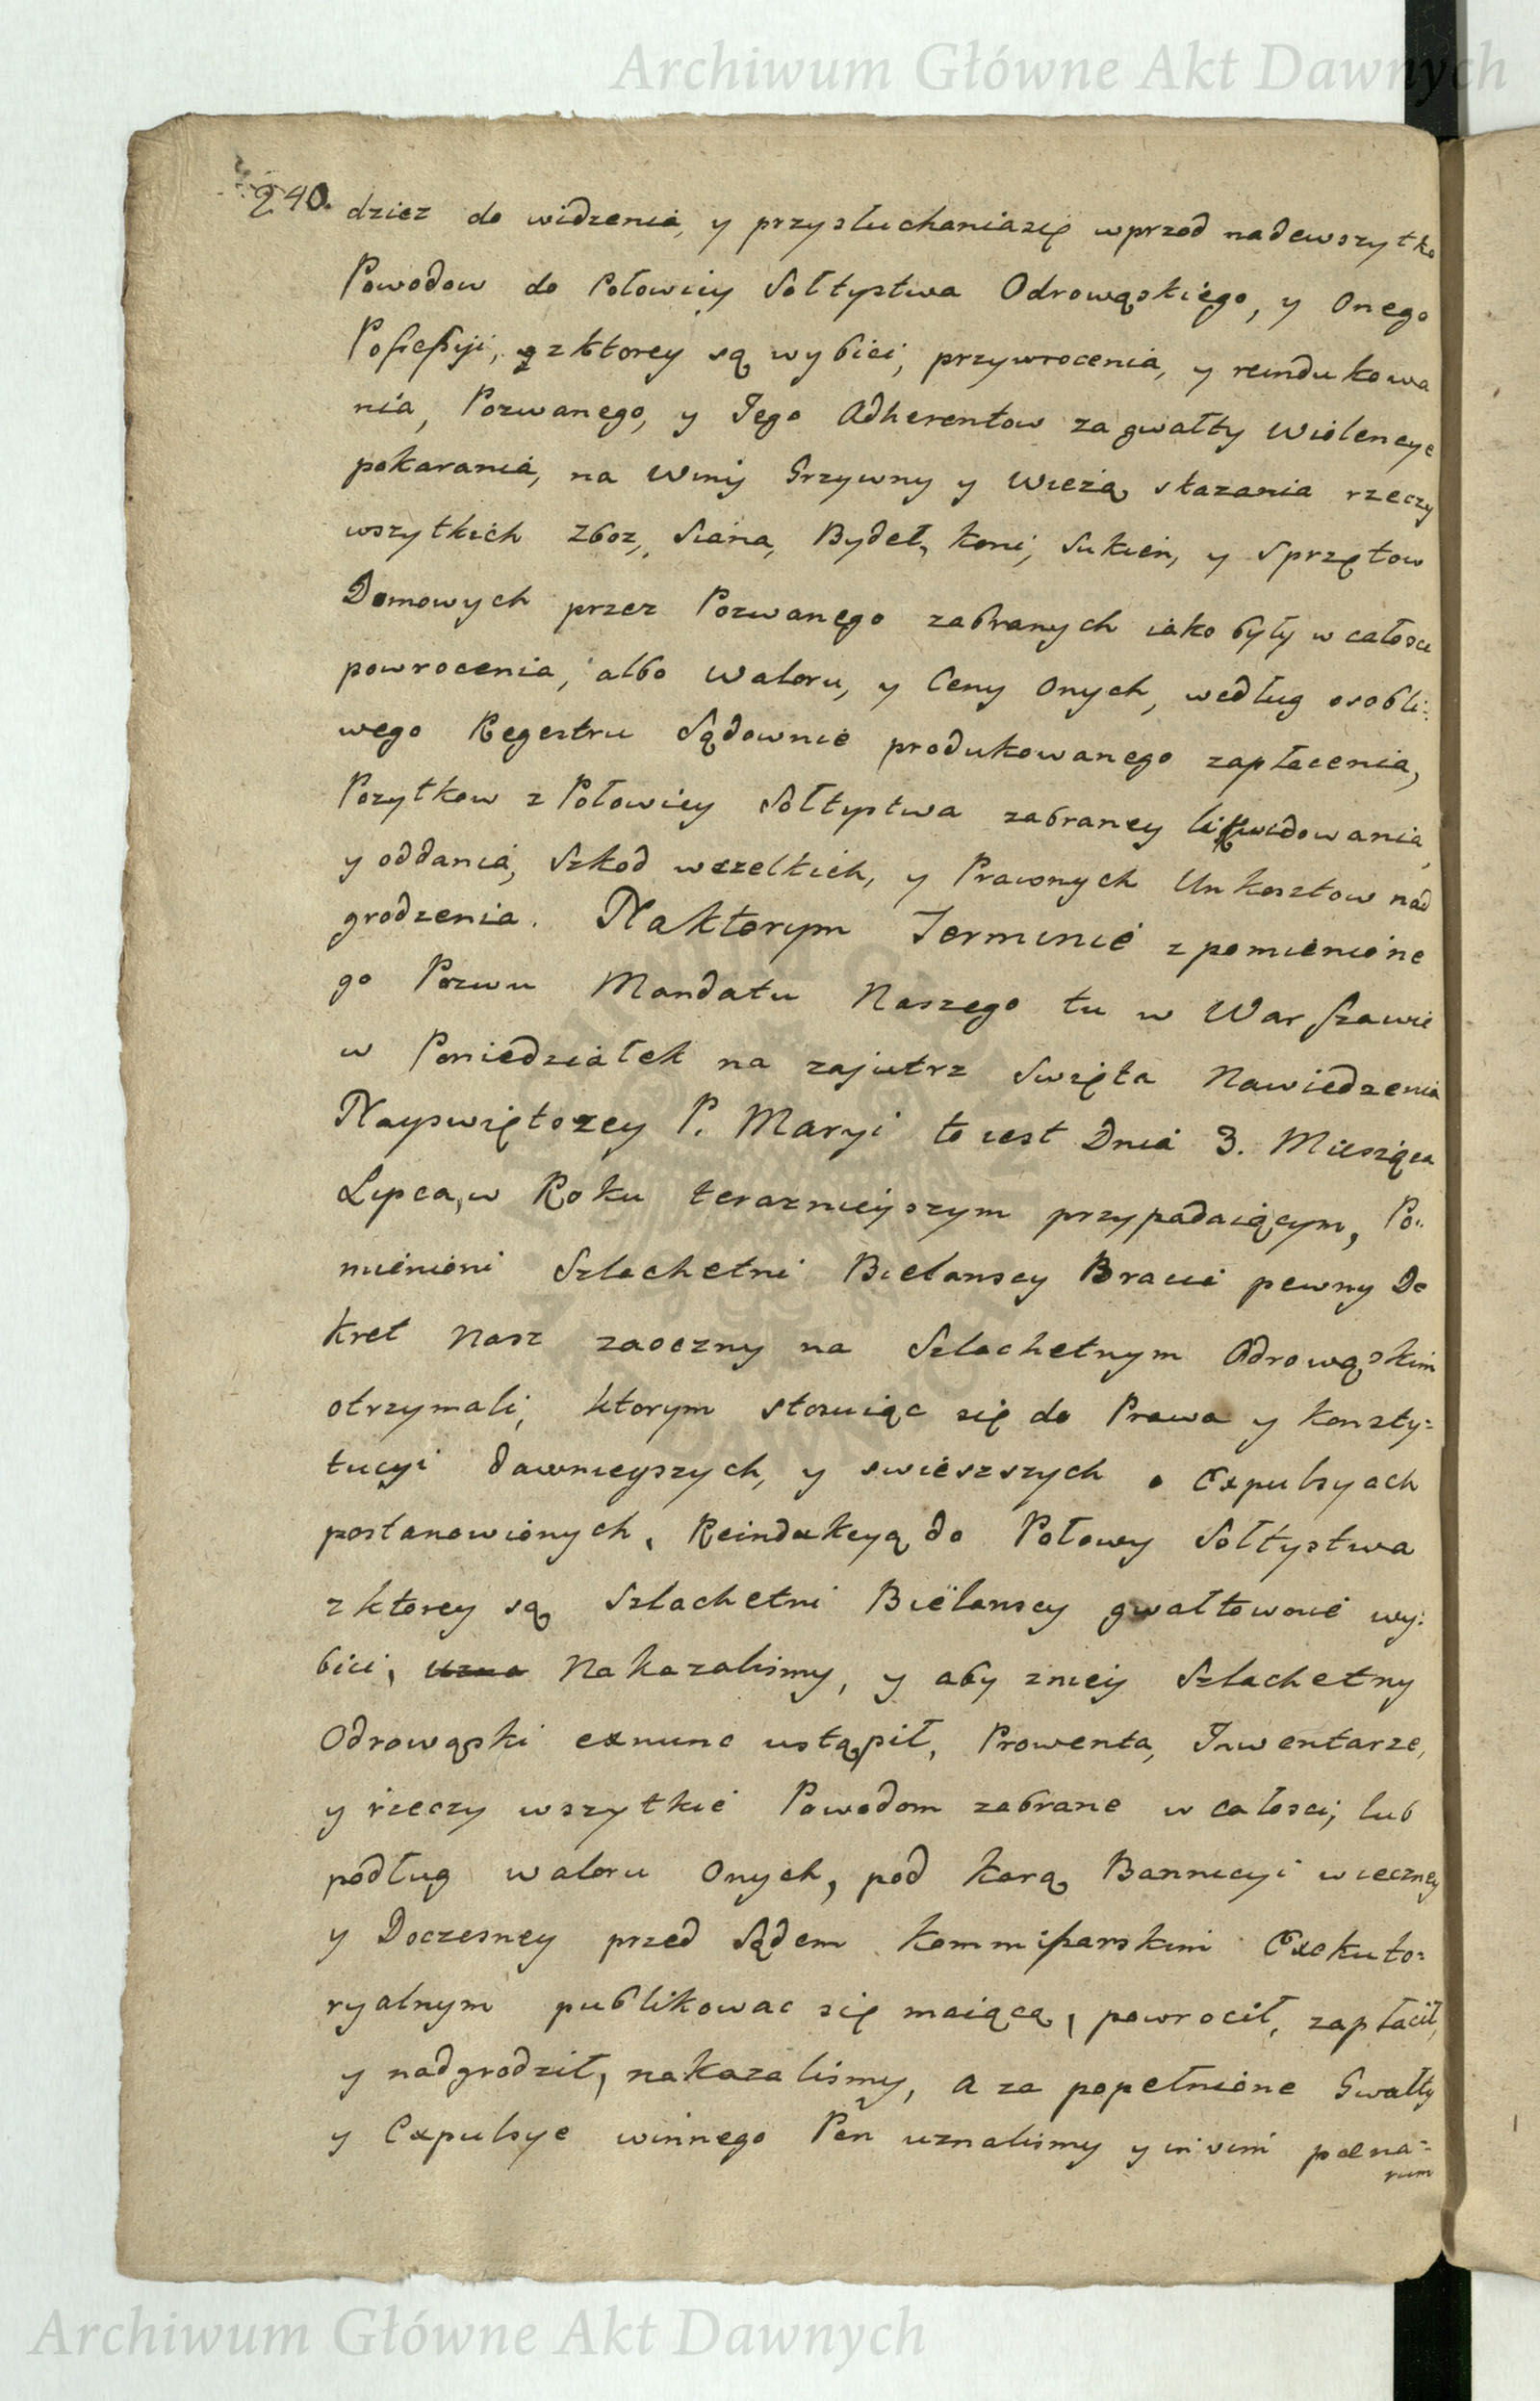 Archiwum Główne Akt Dawnych
240. dziez do widzenia, y przysłuchaniasię wprzod nadewszytko
Powodow do Połowicy Sołtystwa Odrowąskiego, y Onego
Possessyi, z ktorey są wybici, przywrocenia, y reindukowa
nia, Pozwanego, y Jego Adherentow za gwałty Wiolencye
pokarania, na Winy Grzywny y Wieżą skazania rzeczy
wszytkich Zboz, Siana, Bydeł, koni, Sukien, y Sprzętow
Domowych przez Pozwanego zabranych iako były w całosci
powrocenia, albo Waloru, y Ceny Onych, według osobli:
wego Regestru Sądownie produkowanego zapłacenia,
Pozytkow z Połowicy Sołtystwa zabraney likwidowania,
y oddania, Szkod wszelkich, y Prawnych Unkosztow nad
grodzenia. Naktorym Terminie z pomienione
go Pozwu Mandatu Naszego tu w Warszawie
w Poniedziałek na zajutrz Swięta Nawiedzenia
Nayswiętszey P. Maryi to iest Dnia 3. Miesiąca
Lipca, w Roku terazniejszym przypadaiącym, Po:
mienieni Szlachetni Bielanscy Bracia pewny De
kret Nasz zaoczny na Szlachetnym Odrowąskim
otrzymali, ktorym stosuiąc się do Prawa y Konsty:
tucyi dawnieyszych, y swieszszych o Expulsyach
postanowionych, Reindukcyą do Połowy Sołtystwa
z ktorey są Szlachetni Bielanscy gwałtownie wy:
bici, Nakazalismy, y aby zniey Szlachetny
Odrowąski exnunc ustąpił, Prowenta, Inwentarze,
y rzeczy wszytkie Powodom zabrane w całosci, lub
podług waloru Onych, pod karą Bannicyi wieczney
y Doczesney przed Sądem Kommissarskim Exekuto:
ryalnym publikowac się maiącą, powrocił, zapłacił,
y nadgrodził, nakazalismy, a za popełnione Gwałty
y Expulsye winnego Pen uznalismy y in vim paena:
rum
Archiwum Główne Akt Dawnych